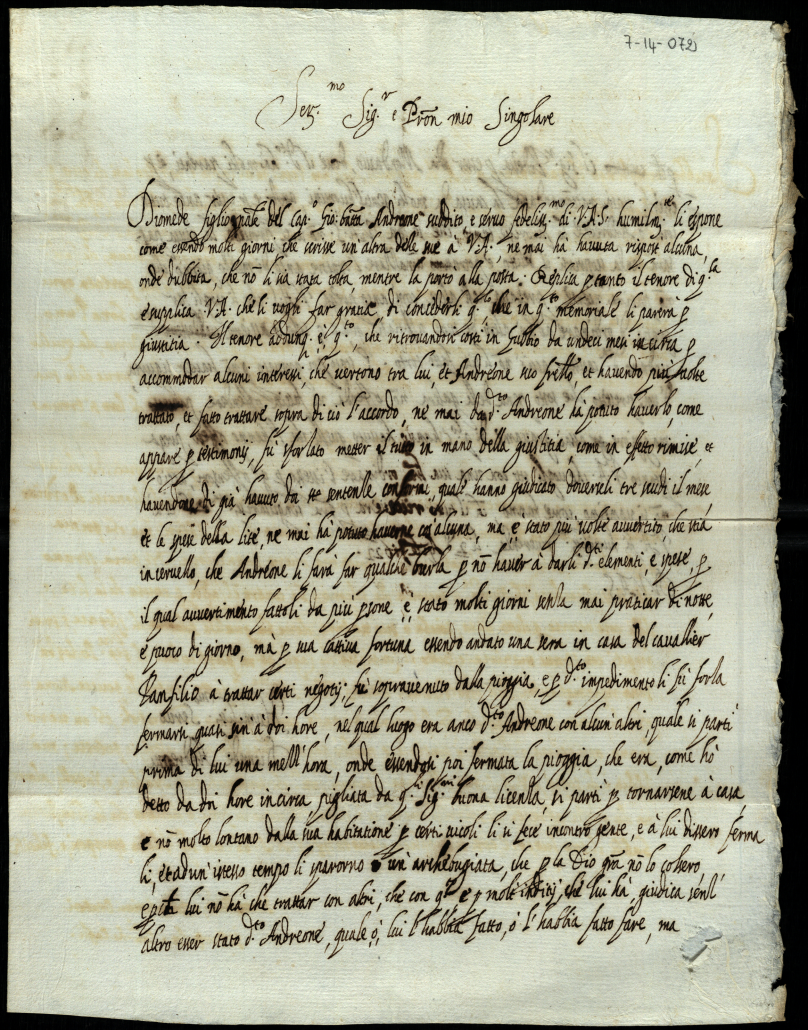 7-14-072
Ser.mo Sig.r e Prõn mio Singolare
Diomede figlio nat.le del Cap.o Gio: batta Andreone suddito, e servo fedeliss.mo di V.A.S. humilm.te li espone
come essendo molti giorni, che scrisse un'altra delle sue à V.A., ne mai ha havuta risposta alcuna,
onde dubbita, che nõ li sia stata tolta, mentre la portò alla posta. Replica p tanto il tenore di q.la
e supplica V.A. che li voglia far gratia di concederli q.to che in q.to memoriale li parerà p
giustitia. Il tenore adonq. è q.to, che ritrovandosi costì in Gubbio da undeci mesi in circa p
accommodar alcuni interessi, che vertono tra lui, et Andreone suo frello, et havendo più volte
trattato, et fatto trattare sopra di ciò l'accordo, ne mai da d.to Andreone ha potuto haverlo, come
appare p testimonij, fu sforzato metter il tutto in mano della giustitia, come in effetto rimise, et
havendone di già havuto doi sentenze conformi, quale hanno giudicato doverseli tre scudi il mese
et le spese della lite, ne mai ha potuto haverne cõ alcuna, ma è stato più volte avvertito, che stia
in cervello, che Andreone li farà far qualche burla p nõ haver à darli d.ti elementi, e spese, p
il qual avvertimento fattoli da più psone è stato molti giorni senza mai praticar di notte,
e puoco di giorno, mà p sua cattiva fortuna essendo andato una sera in casa del cavallier
Panfilio à trattar certi negotij, fu sopravenuto dalla pioggia, e p d.to impedimento li fù forza
fermarsi quasi sin à doi hore, nel qual luogo era anco d.to Andreone con alcun'altri, quale si partì
prima di lui una mezz'hora, onde essendosi poi fermata la pioggia, che era, come hò
detto da doi hore in circa pigliata da q.li Sig.ri buona licenza, si partì p tornarsene à casa,
e nõ molto lontano dalla sua habitatione p certi vicoli li si fece incontro gente, e à lui dissero ferma
li, et ad un'istesso tempo li spararno un'archebugiata, che p la Dio grã nõ lo colsero
e lui nõ ha che trattar con altri, che con q.to e p molti inditij che lui ha, giudica senz'
altro esser stato d.to Andreone, quale ò, lui l'habbia fatto, ò l'habbia fatto fare, ma